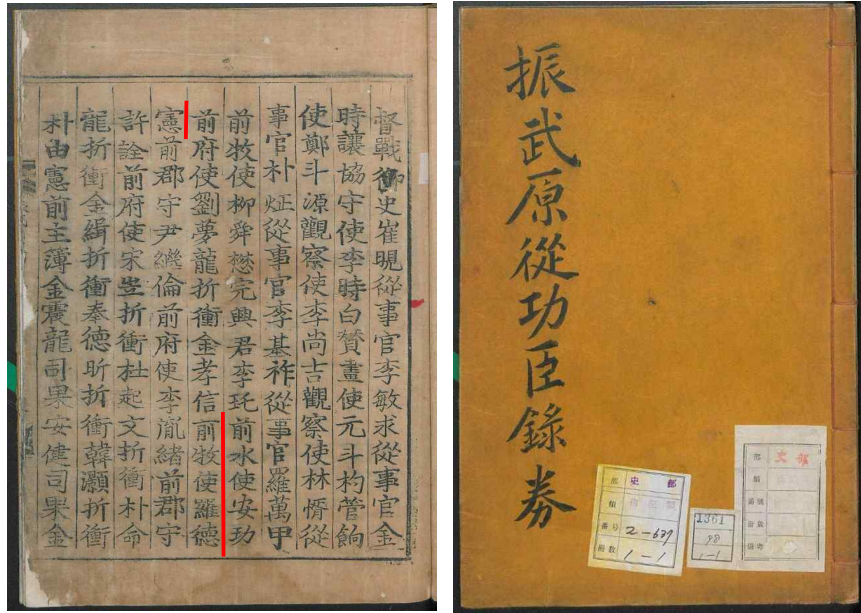 督戰御史崔晛從事官李敏求從事官金
時讓協守使李時白贊畫使元斗杓管餉
使鄭斗源觀察使李尚吉觀察使林㥠從
事官朴炡從事官李基祚從事官羅萬甲
前牧使柳舜懋完興君李玩前水使安玏
前府使劉夢龍折衝金孝信前牧使羅德
憲前郡守尹繼倫前府使李胤緒前郡守
許詮前府使宋㘽折衝杜起文折衝朴命
龍折衝金緝折衝奉德昕折衝韓灝折衝
朴由憲前主簿金震龍司果安健司果金
振武原從功臣錄券
部 史部
類
番号 2-637
冊数 1-1
1361
98
1-1
部 史部
類